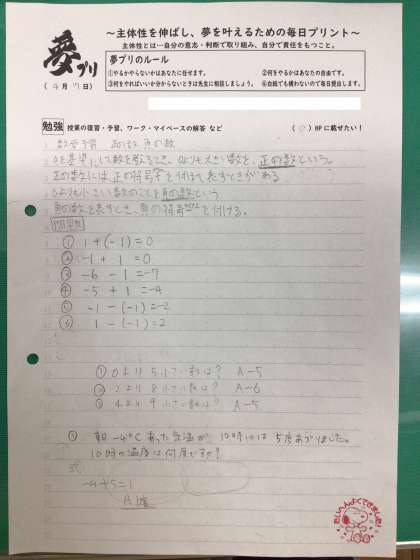 夢プリ
～主体性を伸ばし、夢を叶えるための毎日プリント～
主体性とは…自分の意志・判断で取り組み、自分で責任をもつこと。
夢プリのルール
①やるかやらないかはあなたに任せます。 ②何をやるかはあなたの自由です。
③何をやればいいか分からないときは先生に相談しましょう。 ④白紙でも構わないので毎日提出します。
(4月7日)
勉強 授業の復習・予習、ワーク・マイペースの解答 など ( ○ ) HPに載せたい!
数学予習 正の数、負の数
0を基準にして数を考えるとき、0よりも大きい数を、正の数という。
正の数には、正の符号を付けて表すときがある
0よりも小さい数のことを負の数という
負の数を表すとき、負の符号を付ける。
問題
① 1+(-1)=0
② -1+1=0
③ -6-1=-7
④ -5+1=-4
⑤ -1-(-1)=-2
⑥ 1-(-1)=2
① 0より5小さい数は? A-5
② 2より8小さい数は? A-6
③ 4より9小さい数は? A-5
① 朝-4℃あった気温が 10時には5度あがりました。
10時の温度は何度ですか?
式
-4+5=1
A 1度
たいへんよくできました!
100